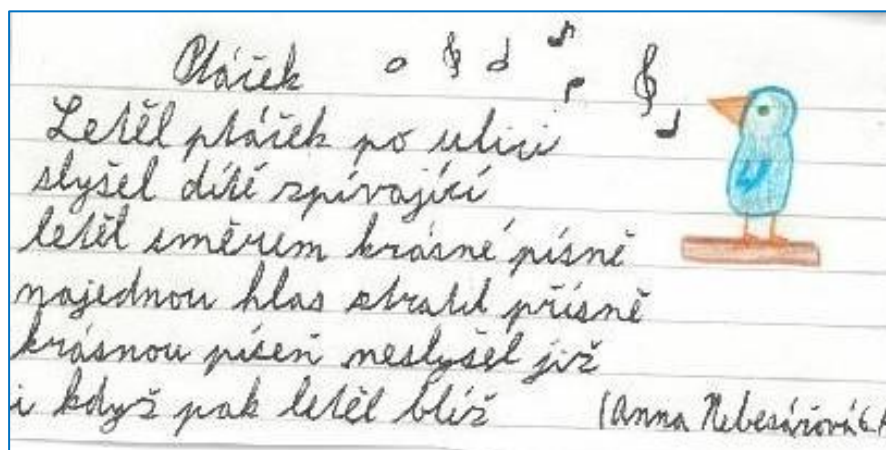 Ptáček
Letěl ptáček po ulici
slyšel dítě zpívající
letěl směrem krásné písně
najednou hlas ztratil přísně
krásnou píseň neslyšel již
i když pak letěl blíž
(Anna Nebesářová 6.A